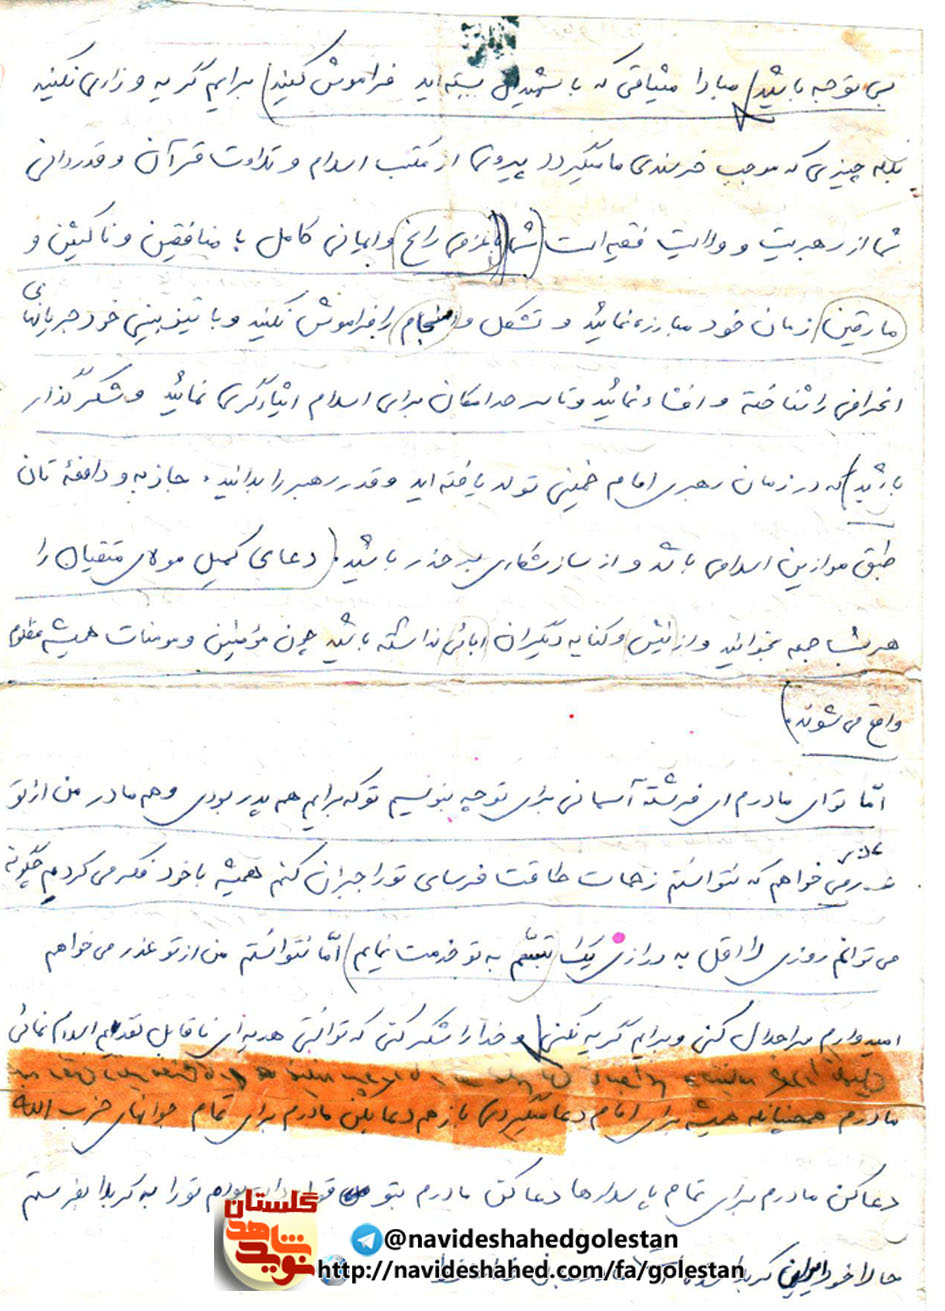 بی توجه باشید) مبادا میثاقی که با شهید بسته اید فراموش کنید) برایم گریه و زاری نکنید
بلکه چیزی که موجب خرسندی ما میگردد پیروی از مکتب اسلام و تلاوت قرآن و قدردانی
شما از رهبریت و ولایت فقیه است (شما با عزمی راسخ و ایمانی کامل با منافقین و ناکثین و
مارقین زمان خود مبارزه نمائید و تشکل و انسجام را فراموش نکنید و با تیزبینی خود جریانهای
انحرافی را شناخته و افشاء نمائید و تا سر حد امکان برای اسلام ایثارگری نمائید و شکرگذار
باشید) که در زمان رهبری امام خمینی تولد یافته اید و قدر رهبر را بدانید. جاذبه و دافعۀ تان
طبق موازین اسلامی باشد و از سازشکاری بر حذر باشید. (دعای کمیل مولای متقیان را
هر شب جمعه بخوانید و از نیش و کنایه دیگران ابائی نداشته باشید چون مؤمنین و مومنات همیشه مظلوم
واقع می شوند.)
امّا تو ای مادرم ای فرشتۀ آسمانی برای تو چه بنویسم تو که برایم هم پدر بودی و هم مادر من از تو
عذر می خواهم که نتوانستم زحمات طاقت فرسای تو را جبران کنم همیشه با خود فکر می کردم چگونه
می توانم روزی لااقل به درازی یک تبسّم به تو خدمت نمایم) امّا نتوانستم من از تو عذر می خواهم
امیدوارم مرا حلال کنی و برایم گریه نکنی) و خدا را شکر کنی که توانستی هدیه ای ناقابل تقدیم اسلام نمائی
مادرم همچنانکه همیشه برای امام دعا میکردی باز هم دعا بکن مادرم برای تمام جوانهای حزب الله
دعا کن مادرم برای تمام پاسدارها دعا کن مادرم بتو قول داده بودم تو را به کربلا بفرستم
حالا خود ایران کربلا شده
گلستان
نوید شاهد
@navideshahedgolestan
http://navideshahed.com/fa/golestan